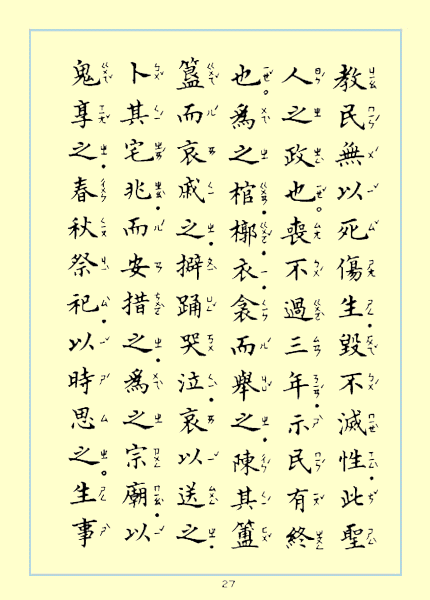 教民無以死傷生.毀不滅性.此聖
人之政也。喪不過三年.示民有終
也。為之棺.槨.衣.衾而舉之.陳其簠
簋而哀戚之.擗踊哭泣.哀以送之.
卜其宅兆.而安措之.為之宗廟.以
鬼享之.春秋祭祀.以時思之。生事
27